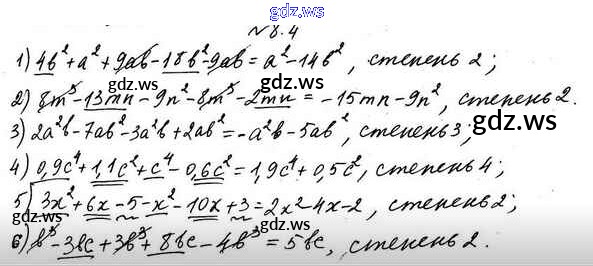 gdz.ws
№8.4
1) 4b² + a² + 9ab - 18b² - 9ab = a² - 14b², степень 2;
gdz.ws
2) 8m³ - 13mn - 9n² - 8m³ - 2mn = -15mn - 9n², степень 2.
3) 2a²b - 7ab² - 3a²b + 2ab² = -a²b - 5ab², степень 3;
gdz.ws
4) 0,9c⁴ + 1,1c² + c⁴ - 0,6c² = 1,9c⁴ + 0,5c², степень 4;
5) 3x² + 6x - 5 - x² - 10x + 3 = 2x² - 4x - 2, степень 2;
6) b³ - 3bc + 3b³ + 8bc - 4b³ = 5bc, степень 2.
gdz.ws